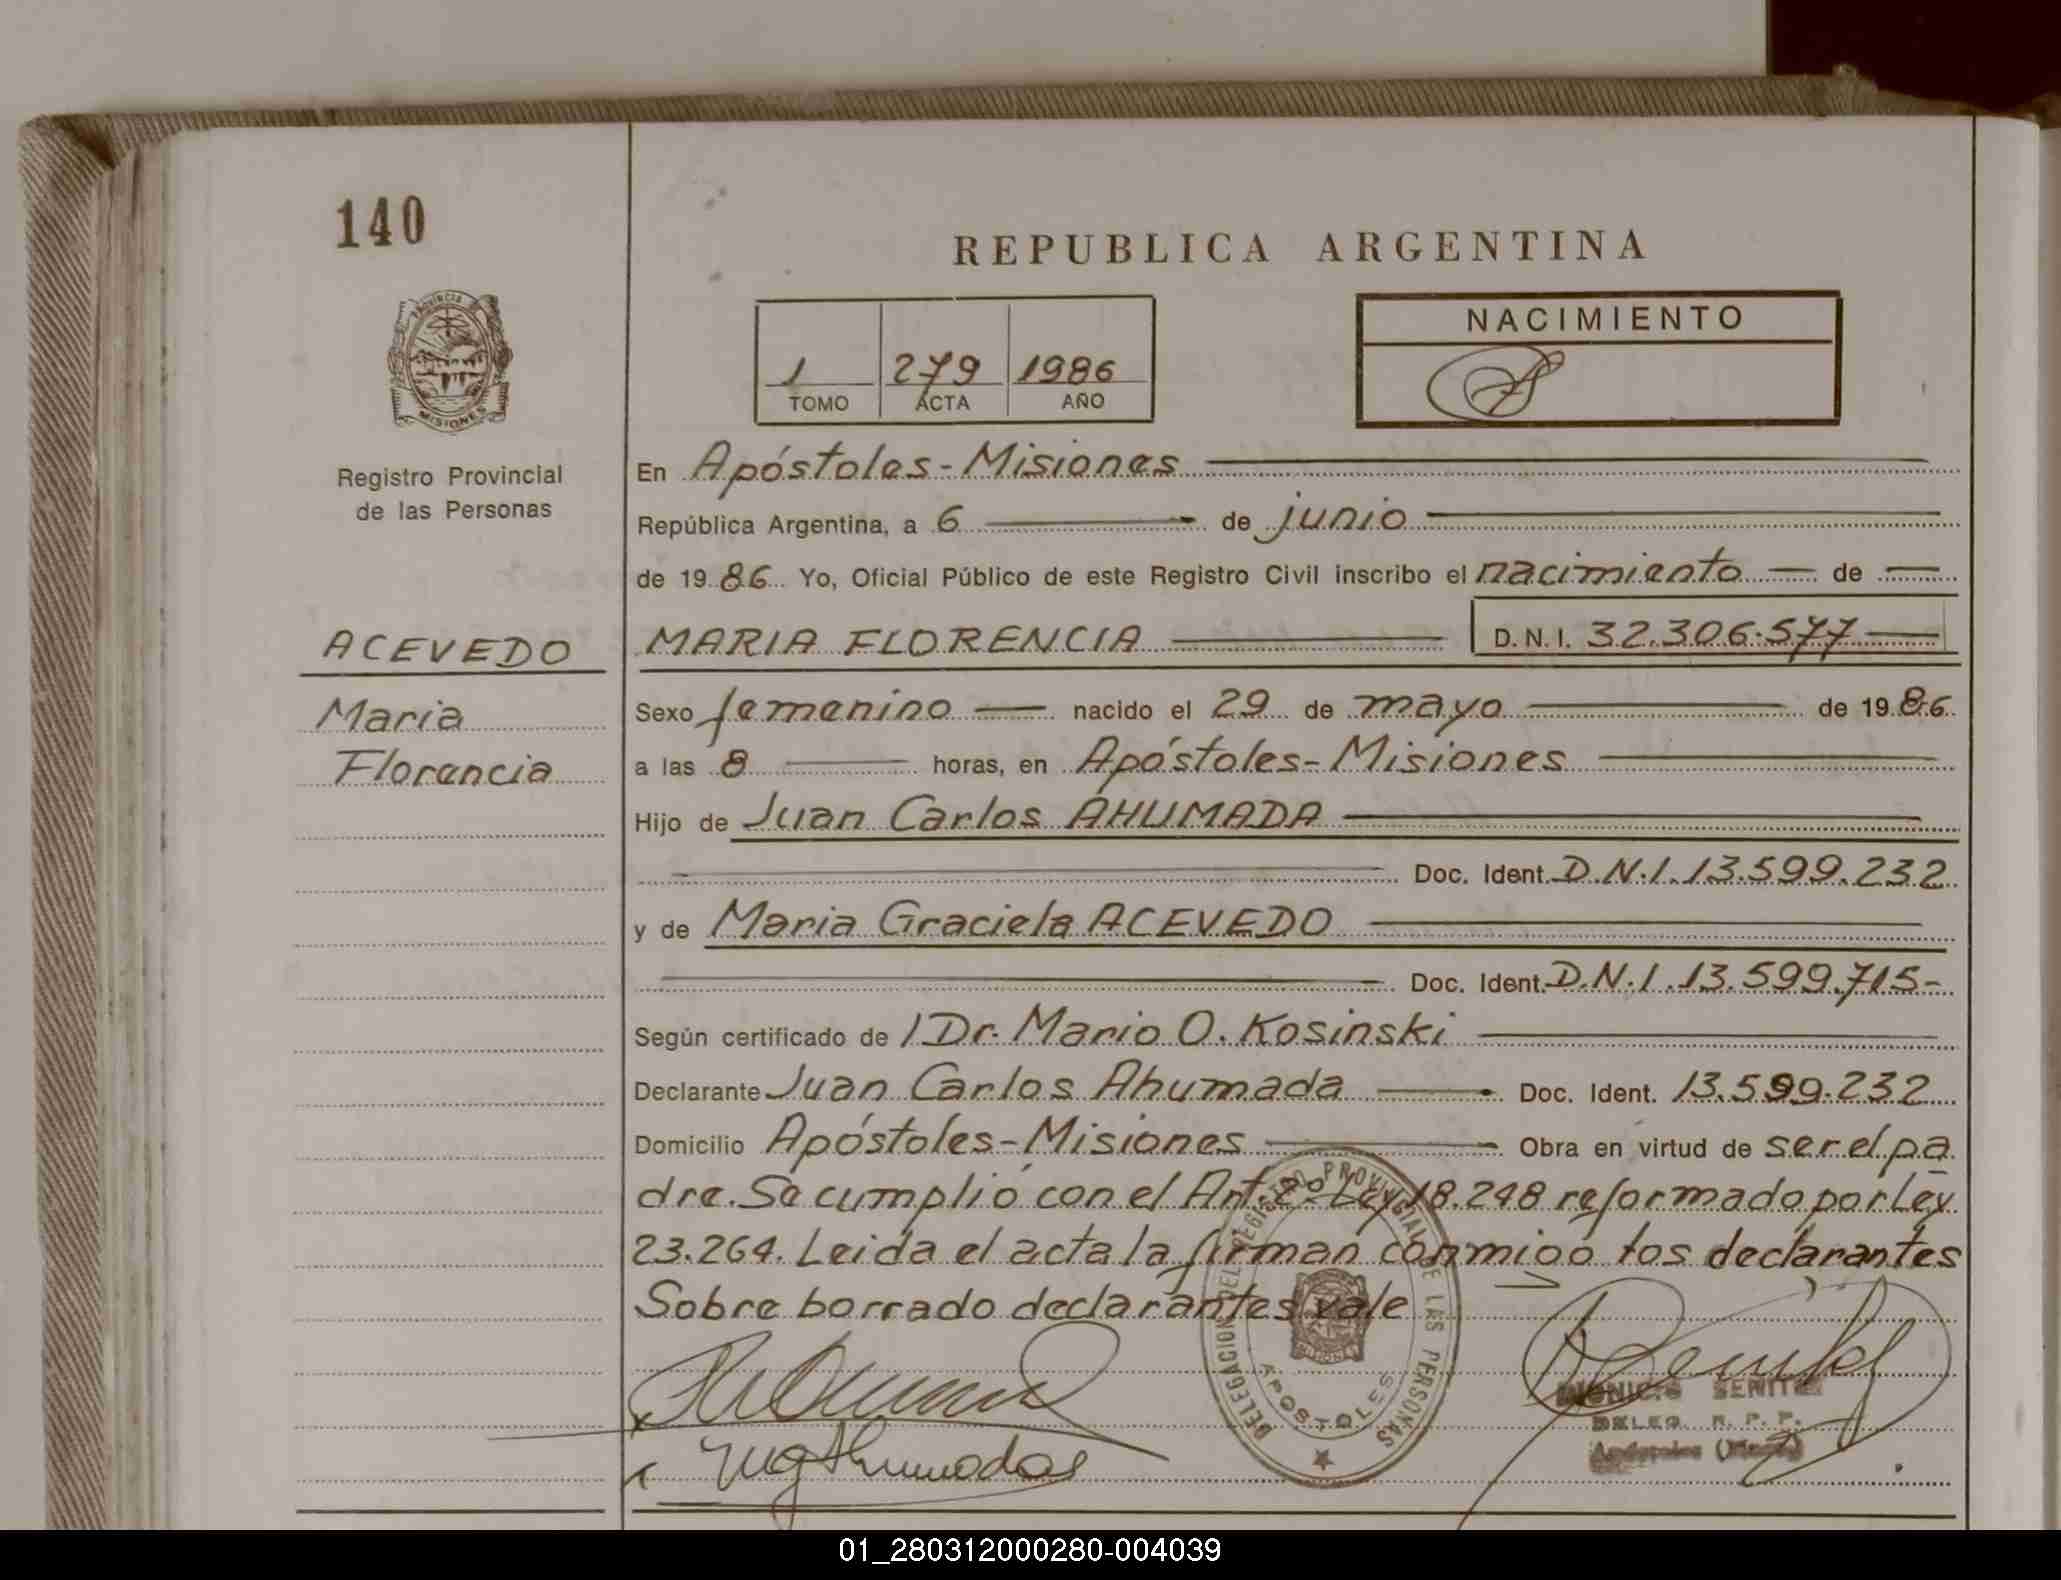 140
REPUBLICA ARGENTINA
PROVINCIA
MISIONES
Registro Provincial
de las Personas
1 279 1986
TOMO ACTA AÑO
NACIMIENTO
En Apóstoles-Misiones
República Argentina, a 6 de junio
de 1986 Yo, Oficial Público de este Registro Civil inscribo el nacimiento de
ACEVEDO
MARIA FLORENCIA D.N.I. 32.306.577
Maria
Florencia
Sexo femenino nacido el 29 de mayo de 1986
a las 8 horas, en Apóstoles-Misiones
Hijo de Juan Carlos AHUMADA
Doc. Ident. D.N.I. 13.599.232
y de Maria Graciela ACEVEDO
Doc. Ident. D.N.I. 13.599.715-
Según certificado de l Dr. Mario O. Kosinski
Declarante Juan Carlos Ahumada Doc. Ident. 13.599.232
Domicilio Apóstoles-Misiones Obra en virtud de ser el pa
dre. Se cumplió con el Art. 2º Ley 18.248 reformado por Ley
23.264. Leida el acta la firman conmigo los declarantes
Sobre borrado declarantes vale
DELEGACION DEL REGISTRO PROVINCIAL DE LAS PERSONAS
MISIONES
APOSTOLES
DELEG. R. P. P.
01_280312000280-004039